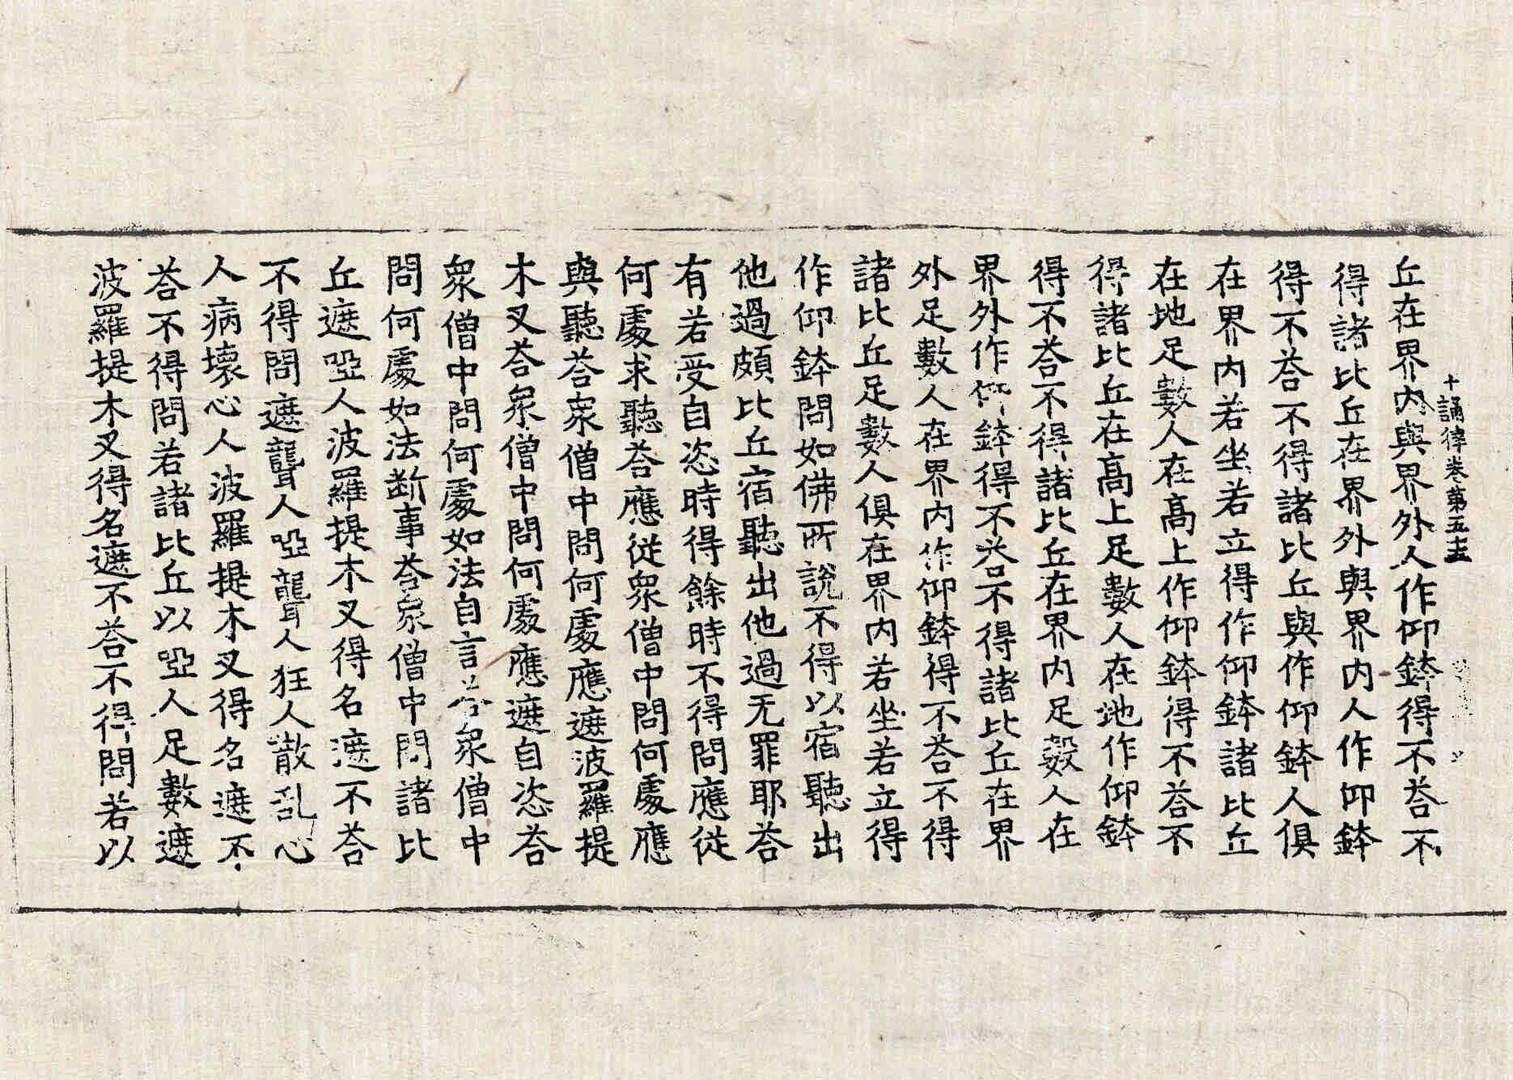 十誦律卷第五十五
丘在界內與界外人作仰鉢得不荅不
得諸比丘在界外與界內人作仰鉢
得不荅不得諸比丘與作仰鉢人俱
在界內若坐若立得作仰鉢諸比丘
在地足數人在高上作仰鉢得不荅不
得諸比丘在高上足數人在地作仰鉢
得不荅不得諸比丘在界內足數人在
界外作仰鉢得不荅不得諸比丘在界
外足數人在界內作仰鉢得不荅不得
諸比丘足數人俱在界內若坐若立得
作仰鉢問如佛所說不得以宿聽出
他過頗比丘宿聽出他過无罪耶荅
有若受自恣時得餘時不得問應從
何處求聽荅應從眾僧中問何處應
與聽荅眾僧中問何處應遮波羅提
木叉荅眾僧中問何處應遮自恣荅
眾僧中問何處如法自言荅眾僧中
問何處如法断事荅眾僧中問諸比
丘遮啞人波羅提木叉得名遮不荅
不得問遮聾人啞聾人狂人散乱心
人病壞心人波羅提木叉得名遮不
荅不得問若諸比丘以啞人足數遮
波羅提木叉得名遮不荅不得問若以